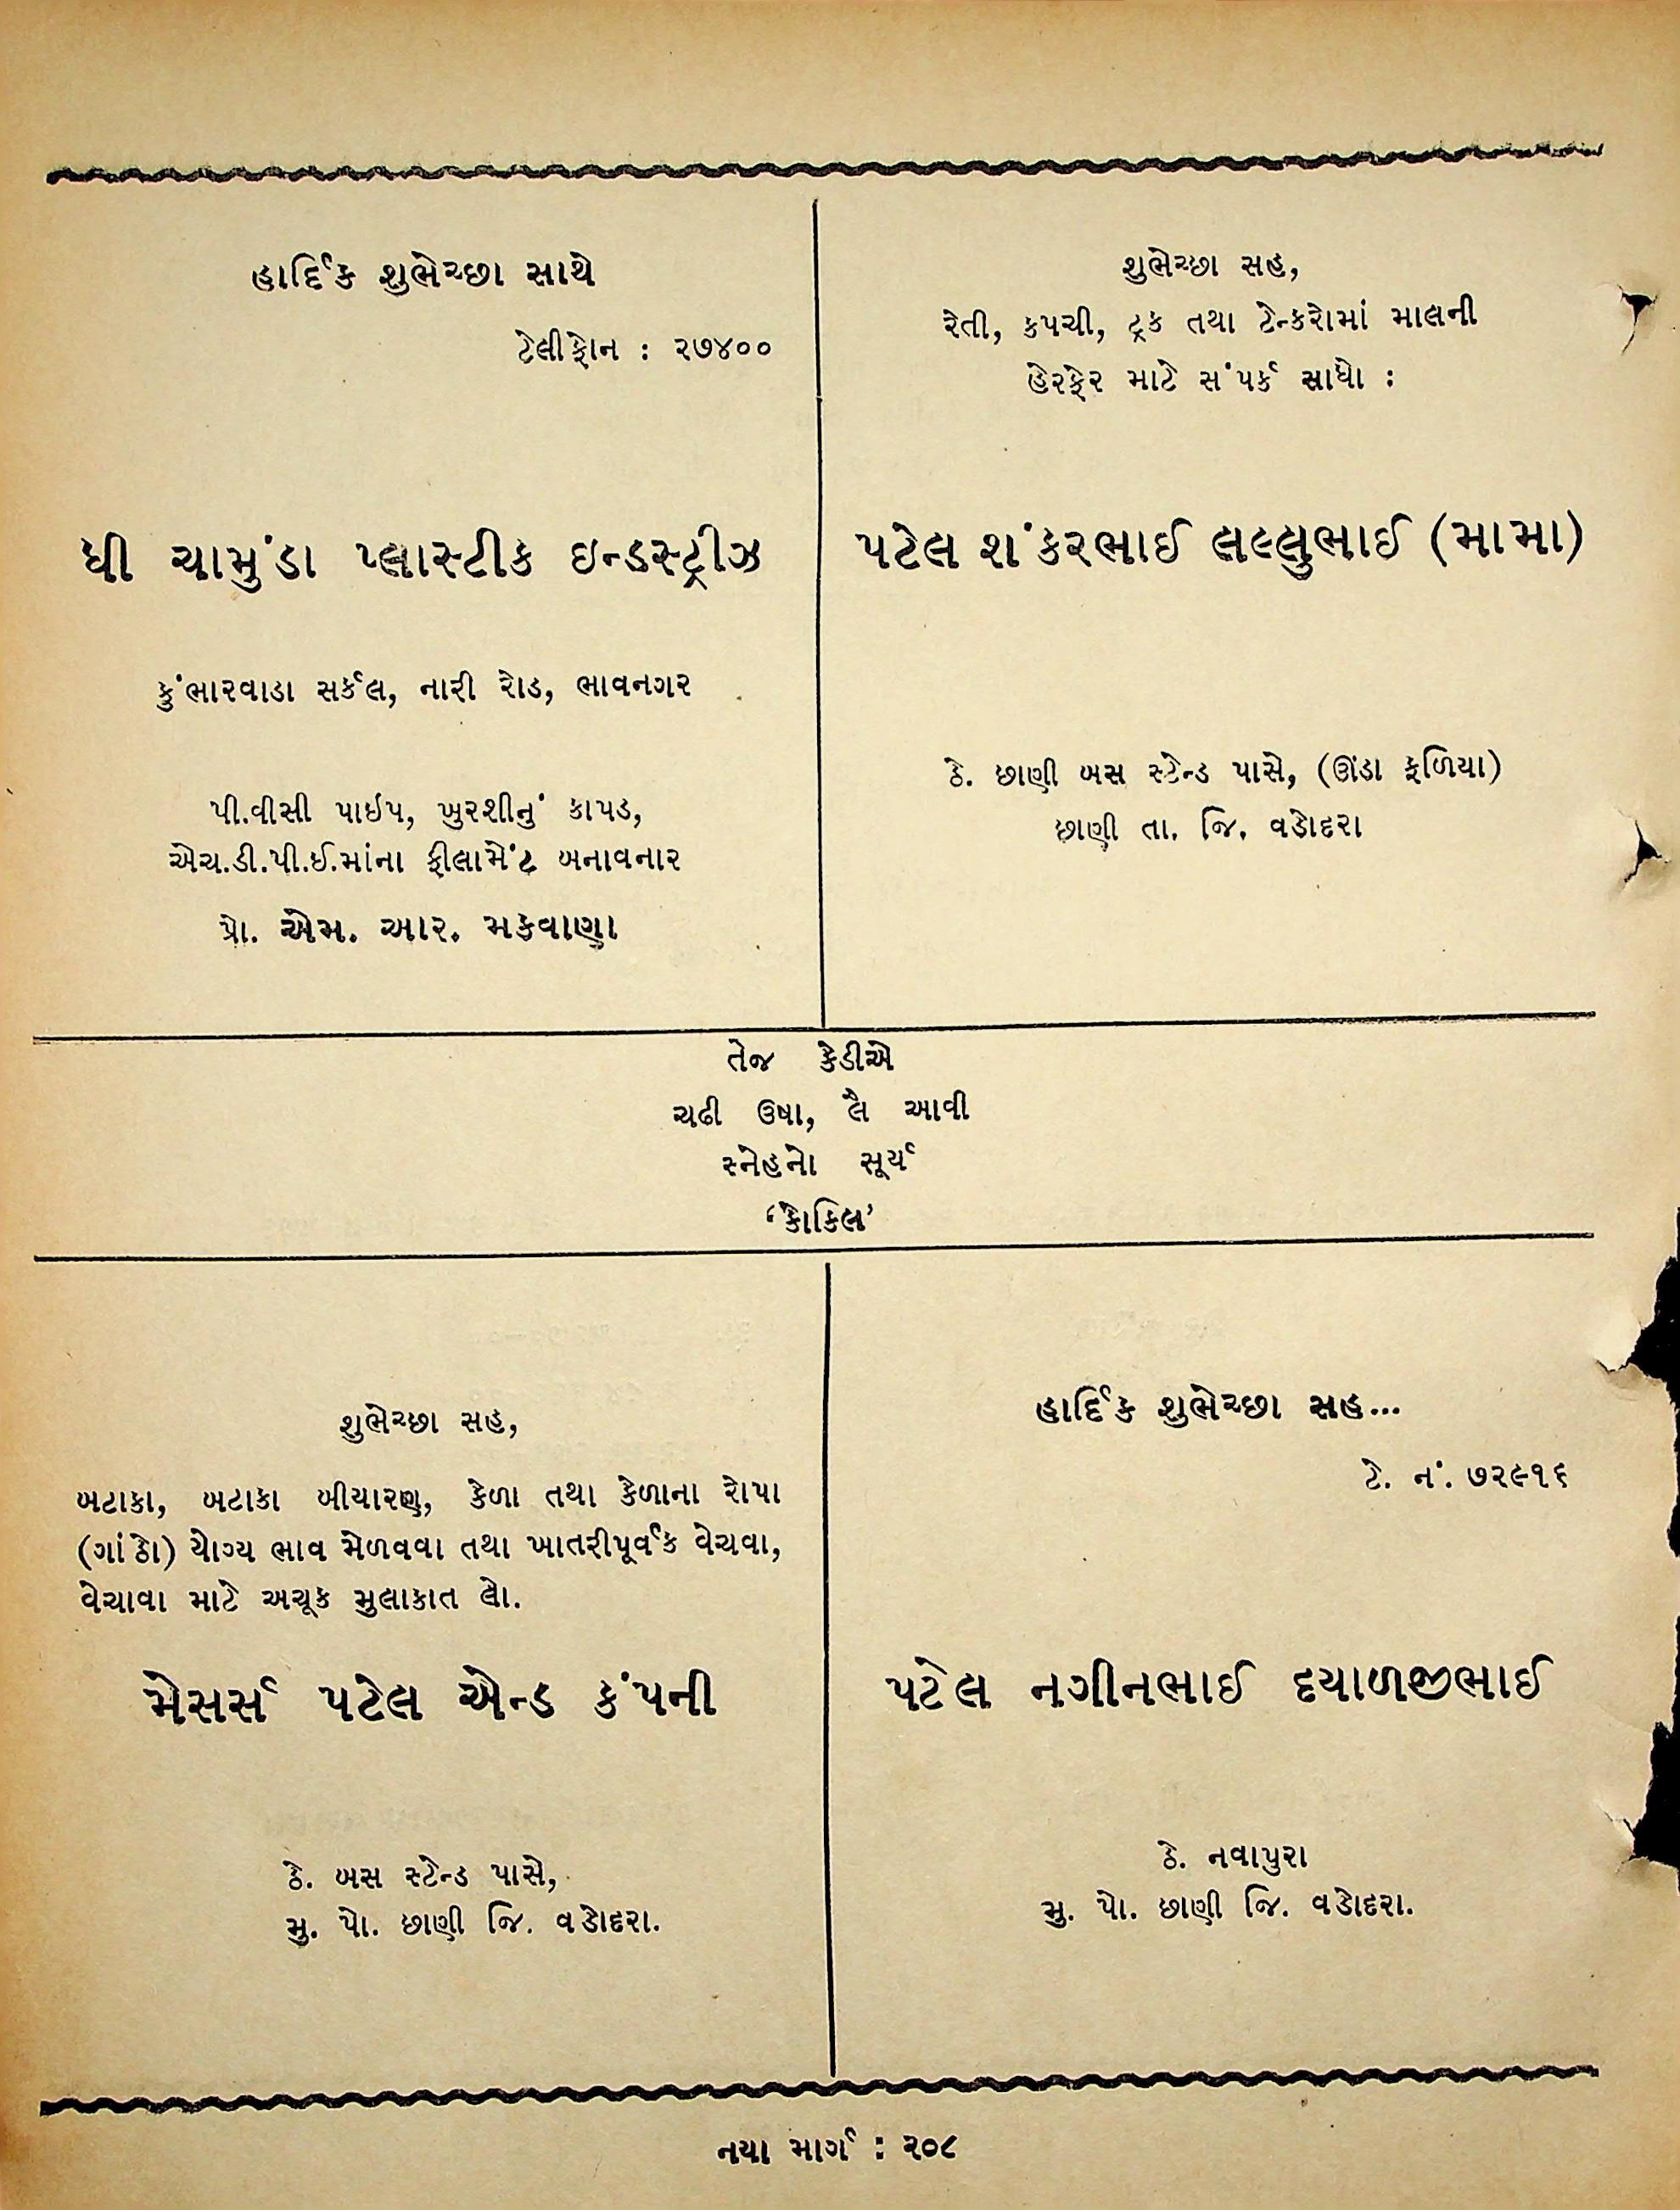 હાર્દિક શુભેચ્છા સાથે
ટેલીફોન : ૨૭૪૦૦
ધી ચામુંડા પ્લાસ્ટીક ઇન્ડસ્ટ્રીઝ
કુંભારવાડા સર્કલ, નારી રોડ, ભાવનગર
પી.વીસી પાઇપ, ખુરશીનું કાપડ,
એચ.ડી.પી.ઈ.માંના ફીલામેંટ બનાવનાર
પ્રો. એમ. આર. મકવાણા
શુભેચ્છા સહ,
રેતી, કપચી, ટ્રક તથા ટેન્કરોમાં માલની
હેરફેર માટે સંપર્ક સાધો :
પટેલ શંકરભાઈ લલ્લુભાઈ (મામા)
ઠે. છાણી બસ સ્ટેન્ડ પાસે, (ઊંડા ફળિયા)
છાણી તા. જિ. વડોદરા
તેજ કેડીએ
ચઢી ઉષા, લૈ આવી
સ્નેહનો સૂર્ય
‘કોકિલ’
શુભેચ્છા સહ,
બટાકા, બટાકા બીયારણ, કેળા તથા કેળાના રોપા
(ગાંઠો) યોગ્ય ભાવ મેળવવા તથા ખાતરીપૂર્વક વેચવા,
વેચાવા માટે અચૂક મુલાકાત લો.
મેસર્સ પટેલ એન્ડ કંપની
ઠે. બસ સ્ટેન્ડ પાસે,
મુ. પો. છાણી જિ. વડોદરા.
હાર્દિક શુભેચ્છા સહ...
ટે. નં. ૭૨૯૧૬
પટેલ નગીનભાઈ દયાળજીભાઈ
ઠે. નવાપુરા
મુ. પો. છાણી જિ. વડોદરા.
નયા માર્ગ : ૨૦૮